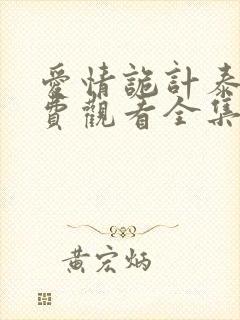 愛情詭計泰
費觀看全集
黃宏炳